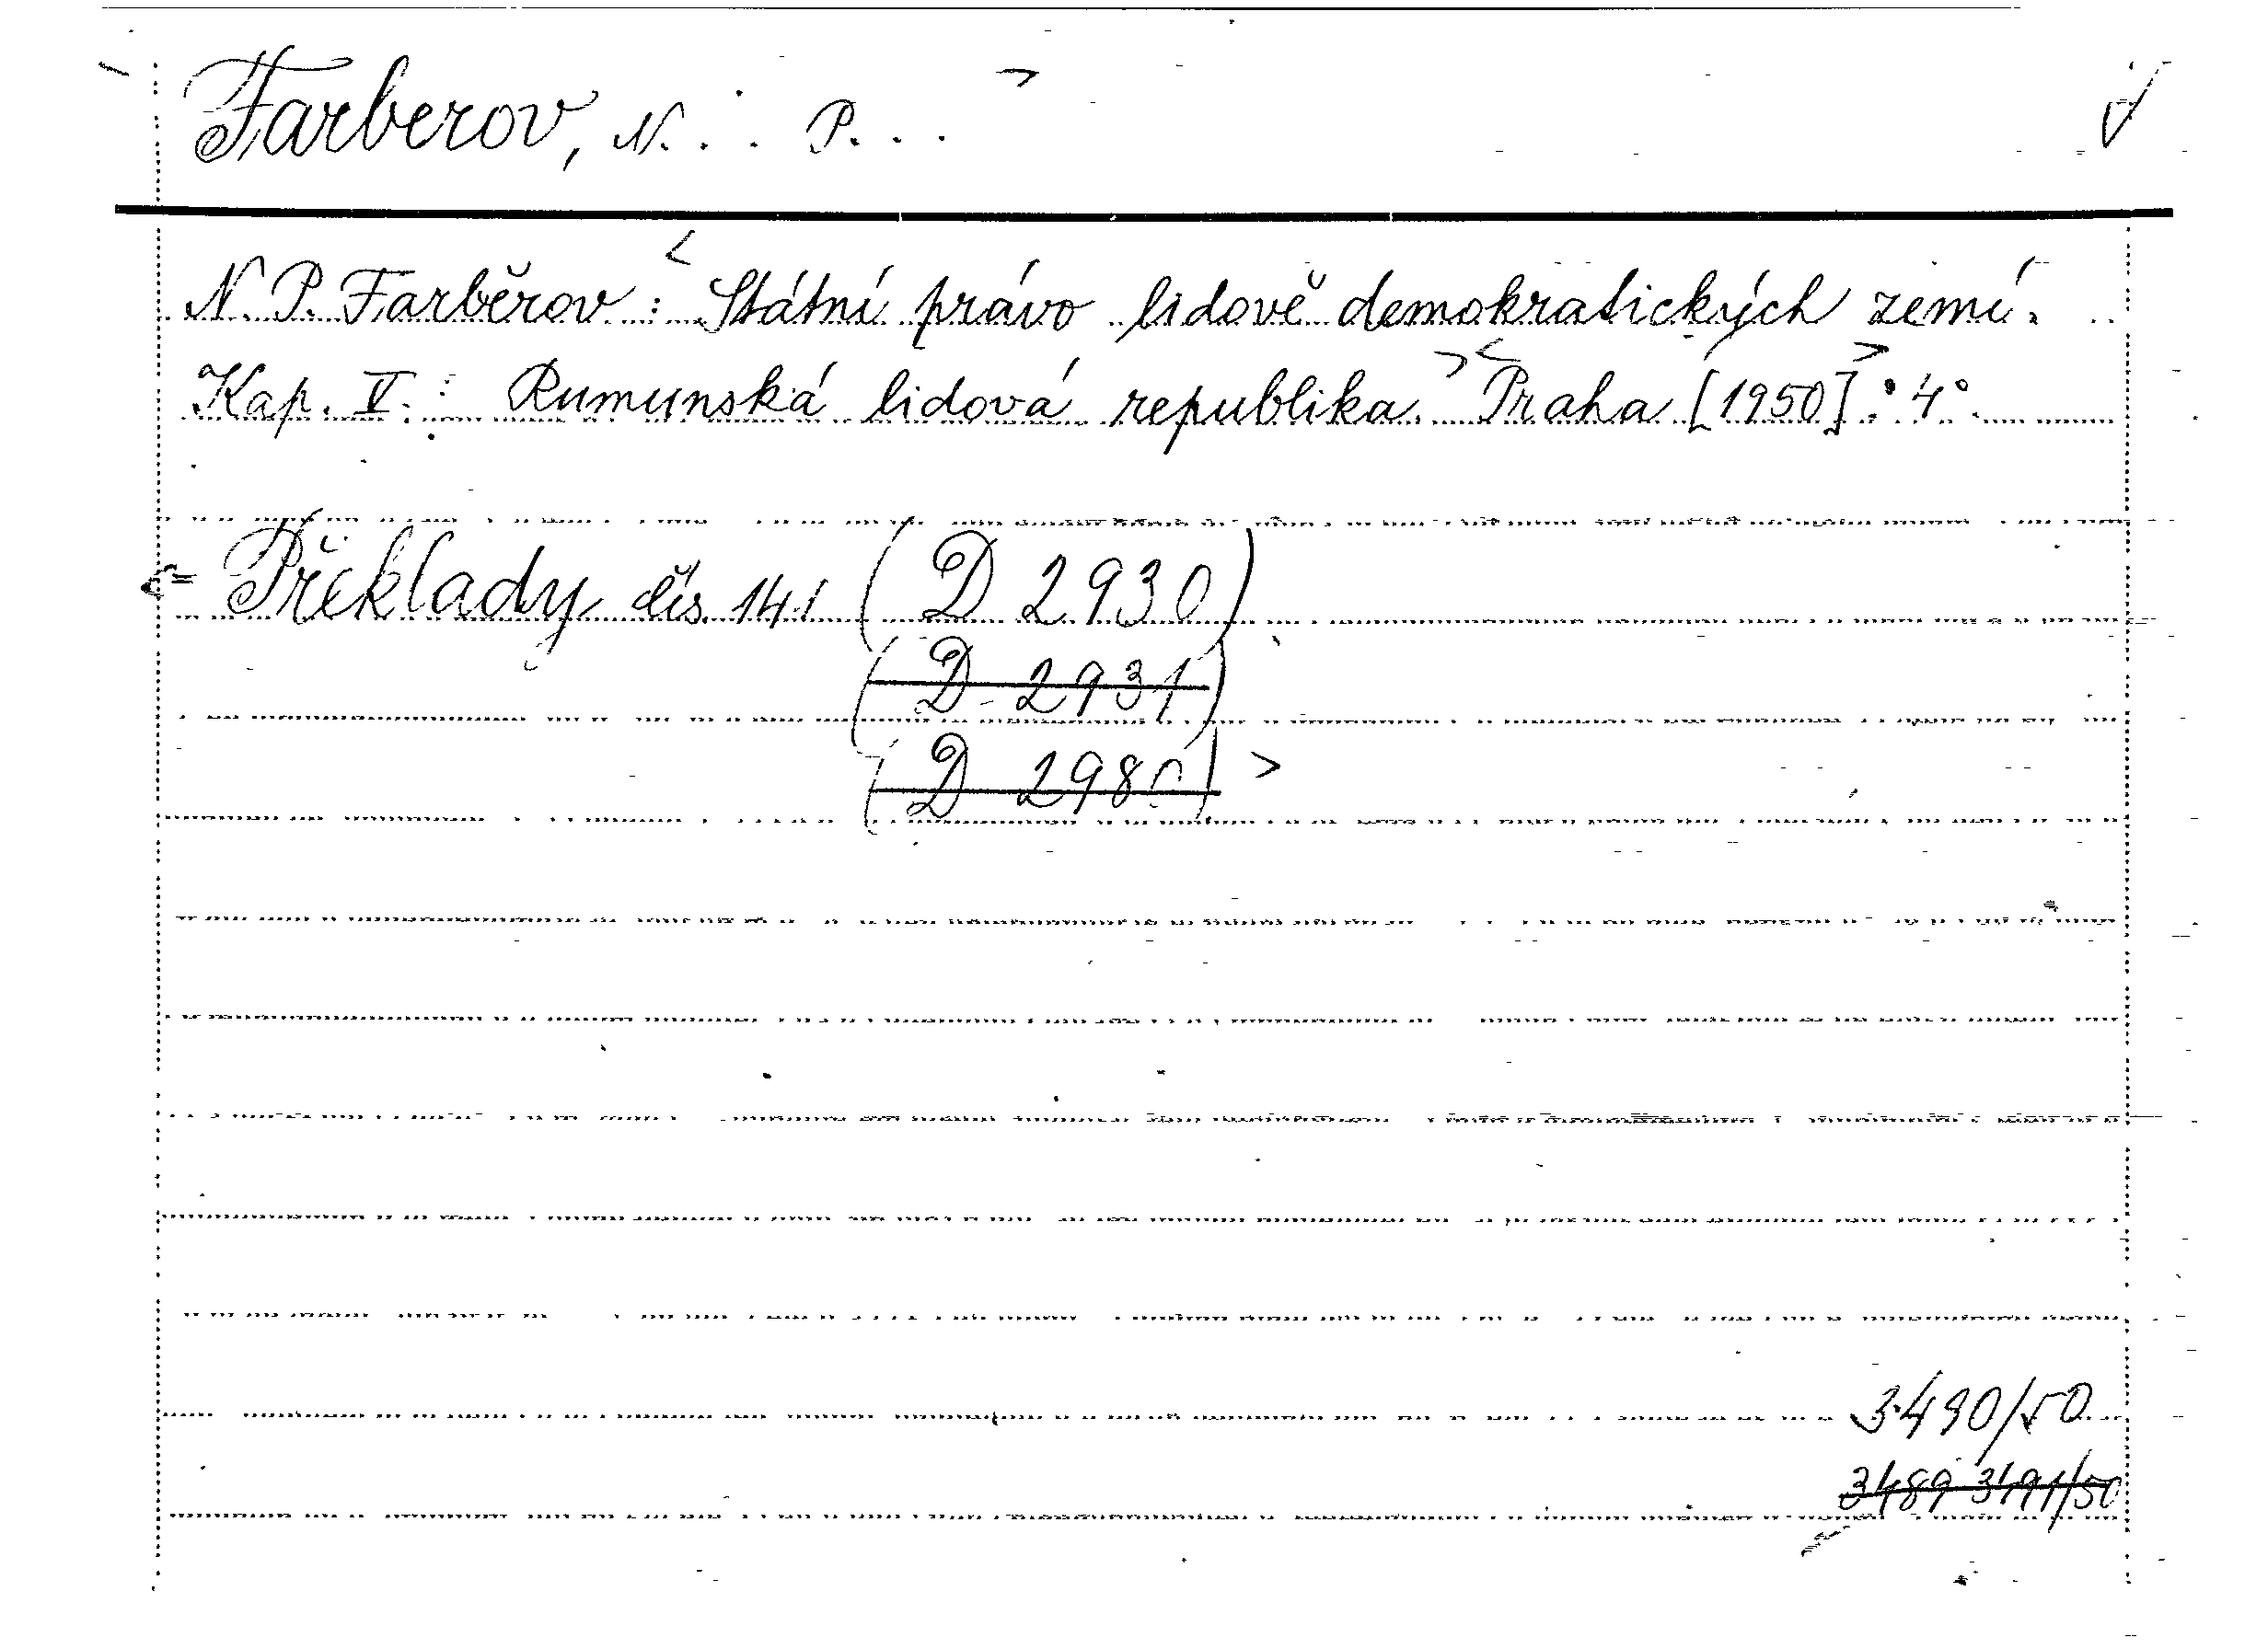 Farberov, N. . . P. . .
N. P. Farběrov: Státní právo lidově demokratických zemí.
Kap. V.: Rumunská lidová republika. Praha [1950]. 4°.
Překlady čís. 141 (D 2930)
(D 2931)
(D 2980)
3490/50
3489 3491/50